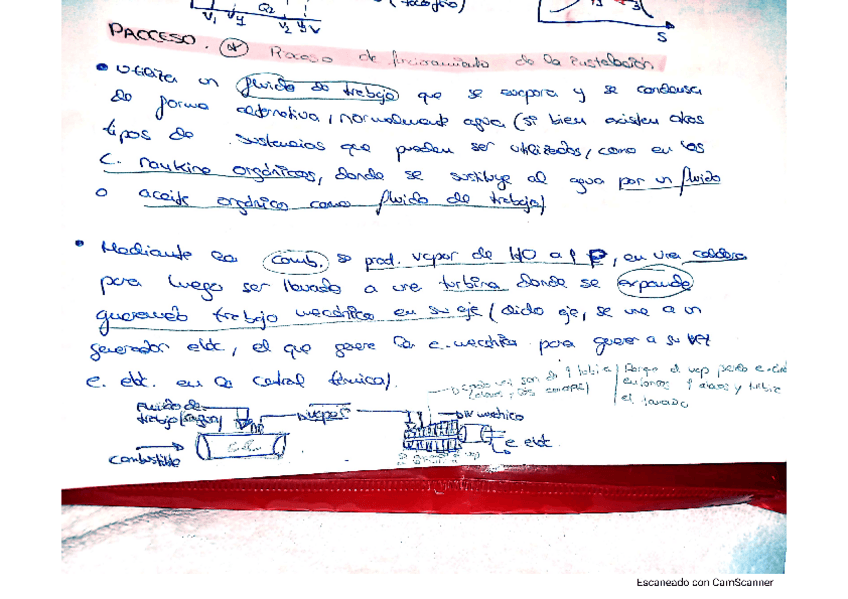 V₁ V₄ Q₂ V₂ V₃ V
S
PROCESO. * Proceso de funcionamiento de la instalación
• Utiliza un fluido de trabajo que se evapora y se condensa
de forma alternativa, normalmente agua (si bien existen otros
tipos de sustancias que pueden ser utilizados, como en los
C. rankine orgánicos, donde se sustituye al agua por un fluido
o aceite orgánico como fluido de trabajo)
• Mediante la comb. se prod. vapor de H2O a ↑ P, en una caldera
para luego ser llevado a una turbina donde se expande
generando trabajo mecánico en su eje (dicho eje, se une a un
generador eléct, el que genere la e. mecánica para generar a su vez
e. eléct. en la central térmica).
Fluido de
trabajo (agua)
vapor
combustible
e eléct.
Escaneado con CamScanner